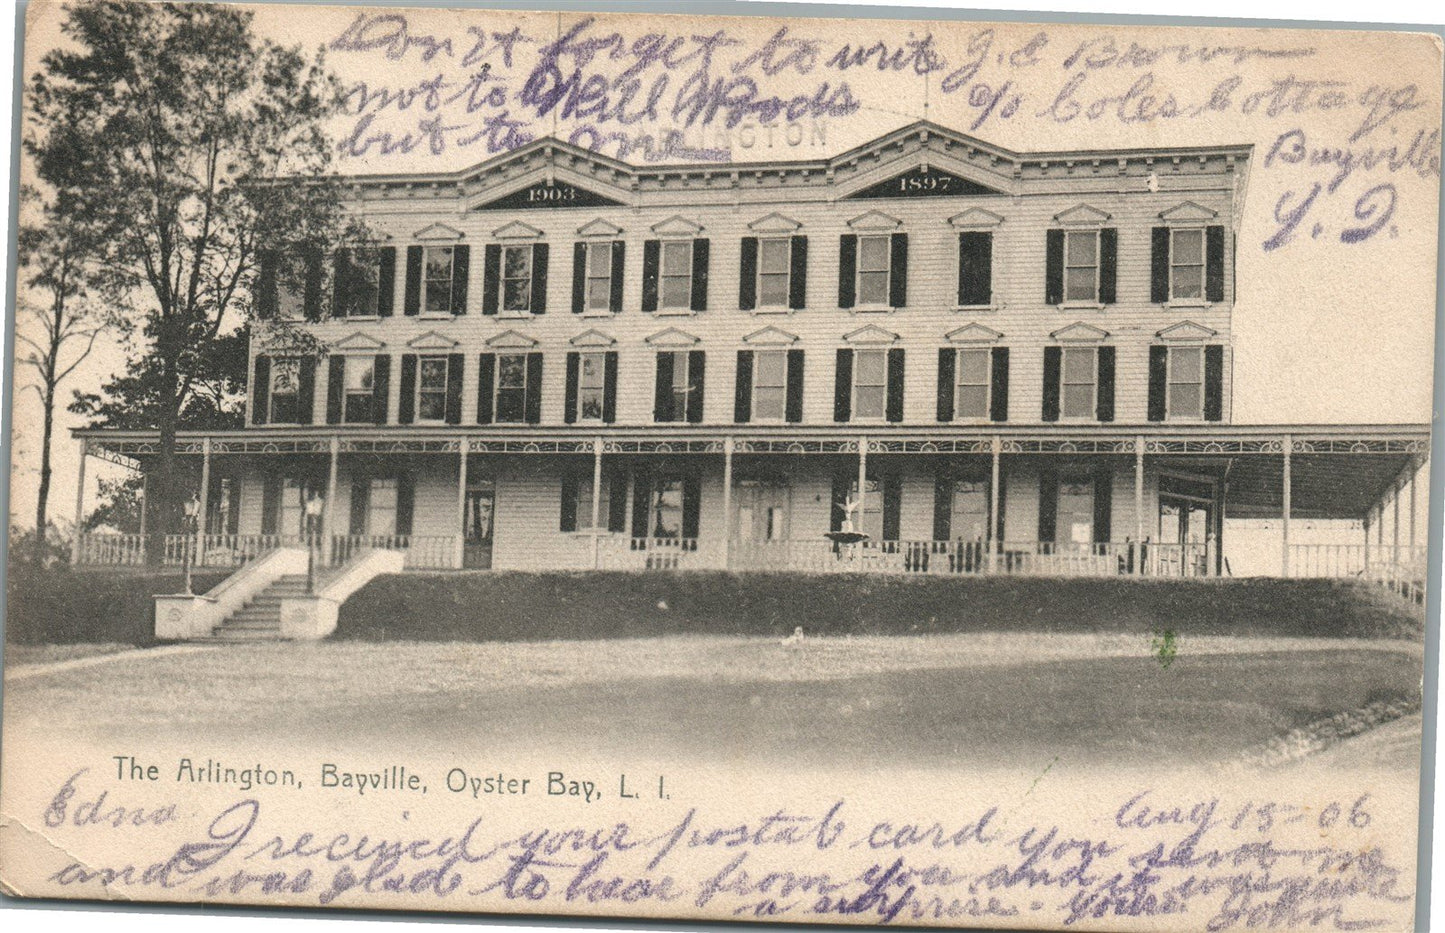 Don't forget to write J. C Brown
not to Will Woods c/o Coles Cottage
but to me Bayville
ARLINGTON L. I.
1903 1897
The Arlington, Bayville, Oyster Bay, L. I.
Edna Aug 15-06
I received your postal card you sent me
and was glad to hear from you and it was quite
a surprise. Yours John